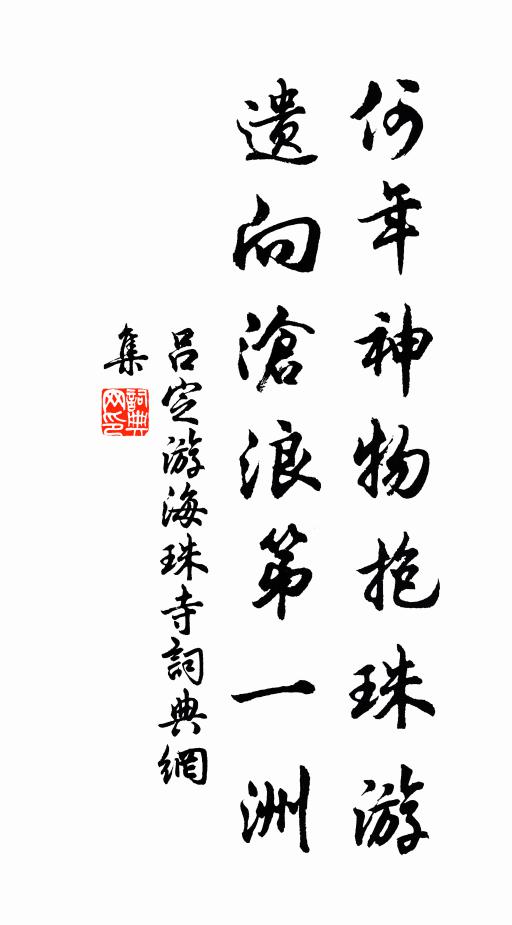 何年神物抱珠游
遗向滄浪第一洲
吕定游海珠寺詞典網
集
詞典
网印